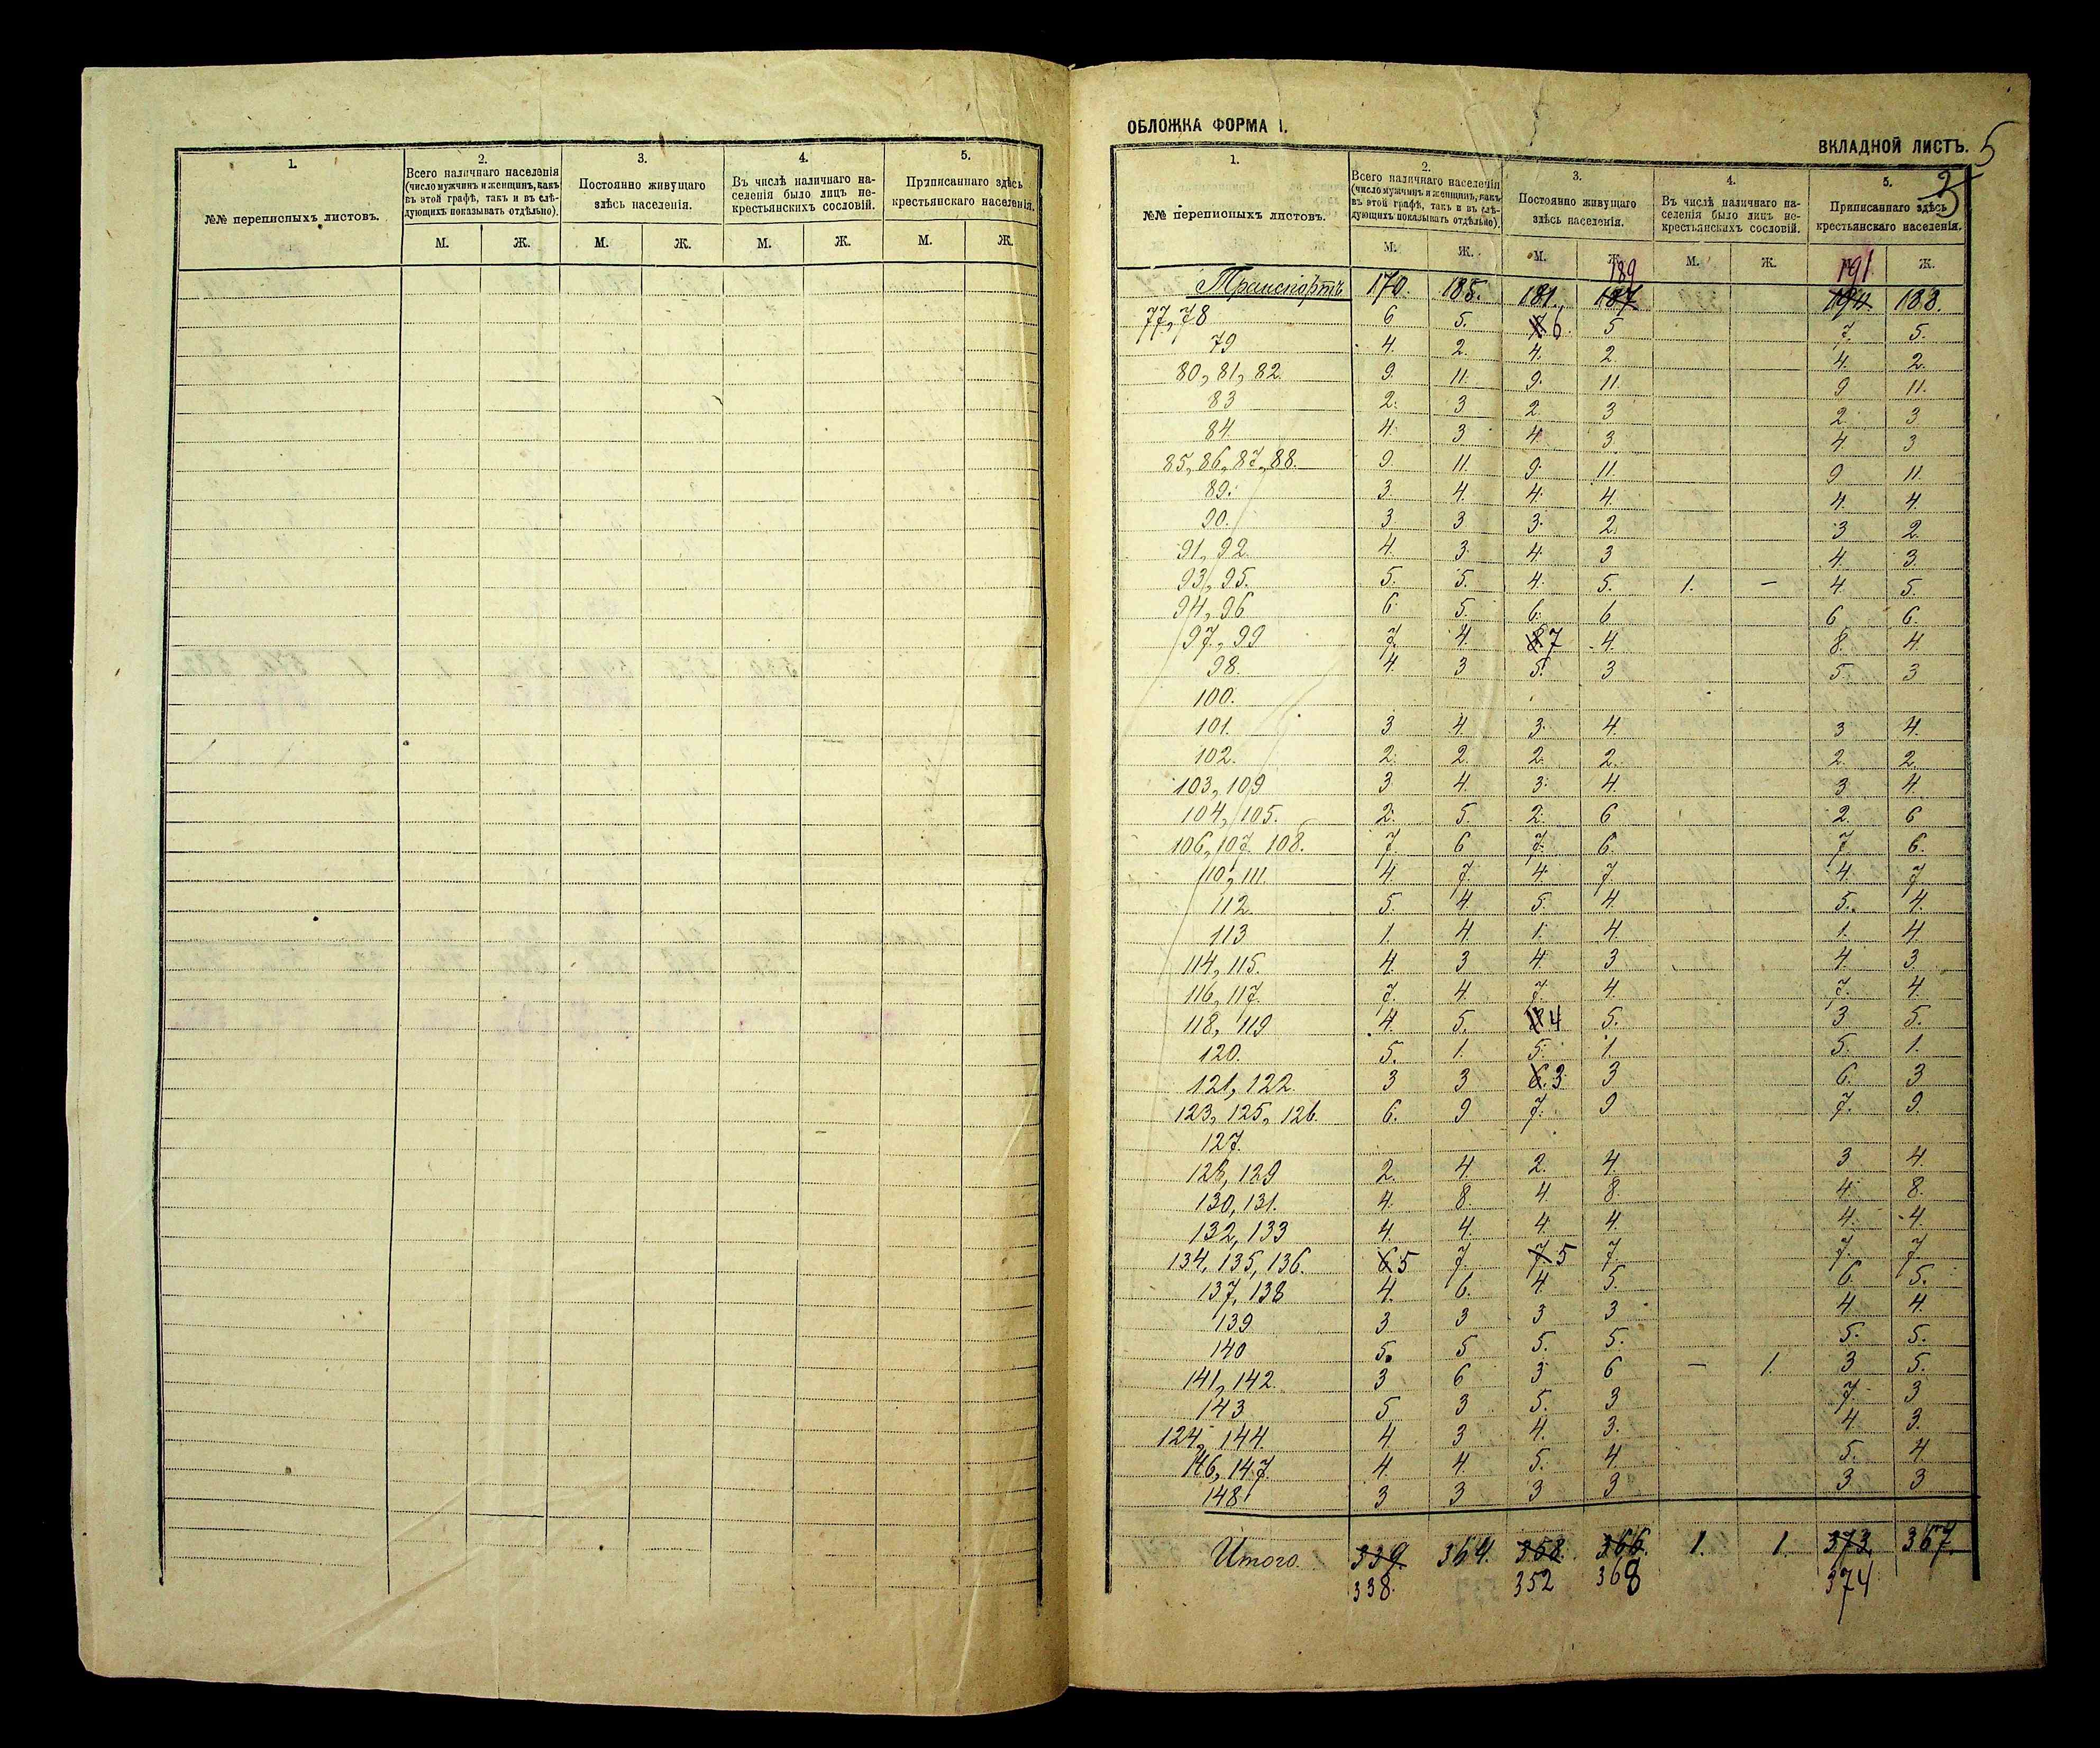 1.
2.
3.
4.
5.
№№ переписныхъ листовъ.
Всего наличнаго населенія
(число мужчинъ и женщинъ, какъ
въ этой графѣ, такъ и въ слѣ-
дующихъ показывать отдѣльно).
Постоянно живущаго
здѣсь населенія.
Въ числѣ наличнаго на-
селенія было лицъ не-
крестьянскихъ сословій.
Приписаннаго здѣсь
крестьянскаго населенія.
М. Ж. М. Ж. М. Ж. М. Ж.
ОБЛОЖКА ФОРМА I.
ВКЛАДНОЙ ЛИСТЪ. 5
1.
2.
3.
4.
5.
№№ переписныхъ листовъ.
Всего наличнаго населенія
(число мужчинъ и женщинъ, какъ
въ этой графѣ, такъ и въ слѣ-
дующихъ показывать отдѣльно).
Постоянно живущаго
здѣсь населенія.
Въ числѣ наличнаго на-
селенія было лицъ не-
крестьянскихъ сословій.
Приписаннаго здѣсь
крестьянскаго населенія.
М. Ж. М. Ж. М. Ж. Ж.
189 191
Транспортъ 170. 185. 181. 187 194 188.
77, 78 6 5. 7 6. 5 7. 5.
79 4. 2. 4. 2. 4. 2.
80, 81, 82. 9. 11. 9. 11. 9 11.
83 2. 3 2. 3 2. 3
84. 4. 3 4. 3. 4. 3
85, 86, 87, 88. 9. 11. 9. 11. 9 11.
89. 3. 4. 4. 4. 4. 4.
90. 3 3 3. 2. 3 2.
91, 92. 4. 3. 4. 3 4. 3.
93, 95. 5. 5. 4. 5. 1. – 4. 5.
94, 96 6. 5. 6. 6. 6 6.
97, 99 7. 4. 8 7 4. 8. 4.
98. 4. 3 5. 3 5. 3
100.
101. 3 4. 3. 4. 3 4.
102. 2. 2. 2. 2. 2. 2.
103, 109 3 4. 3. 4. 3 4.
104, 105. 2. 5. 2. 6 2. 6
106, 107, 108. 7. 6 7. 6. 7 6.
110, 111. 4. 7. 4. 7. 4. 7
112. 5. 4. 5. 4. 5. 4.
113 1. 4. 1. 4. 1. 4.
114, 115. 4. 3 4. 3 4. 3.
116, 117. 7. 4. 7. 4. 7. 4.
118, 119 4. 5. 4 5. 3 5.
120. 5. 1. 5. 1. 5. 1.
121, 122. 3 3 6. 3. 3 6. 3
123, 125, 126. 6. 9 7. 9 7. 9.
127.
128, 129 2. 4 2. 4. 3 4.
130, 131. 4. 8. 4. 8. 4. 8.
132, 133 4. 4. 4. 4. 4. 4.
134, 135, 136. 6 5 7. 7 5 7. 7. 7.
137, 138 4. 6. 4. 5. 6. 5.
139 3 3 3 3 4. 4.
140 5. 5 5. 5. 5. 5.
141, 142. 3 6 3 6 – 1. 3 5.
143 5 3 5. 3 7. 3
124, 144. 4. 3 4. 3. 4. 3.
146, 147. 4. 4. 5. 4. 5. 4.
148. 3 3 3 3. 3 3
Итого. 339. 364. 358. 366. 1. 1. 373. 367.
338. 352 368 374